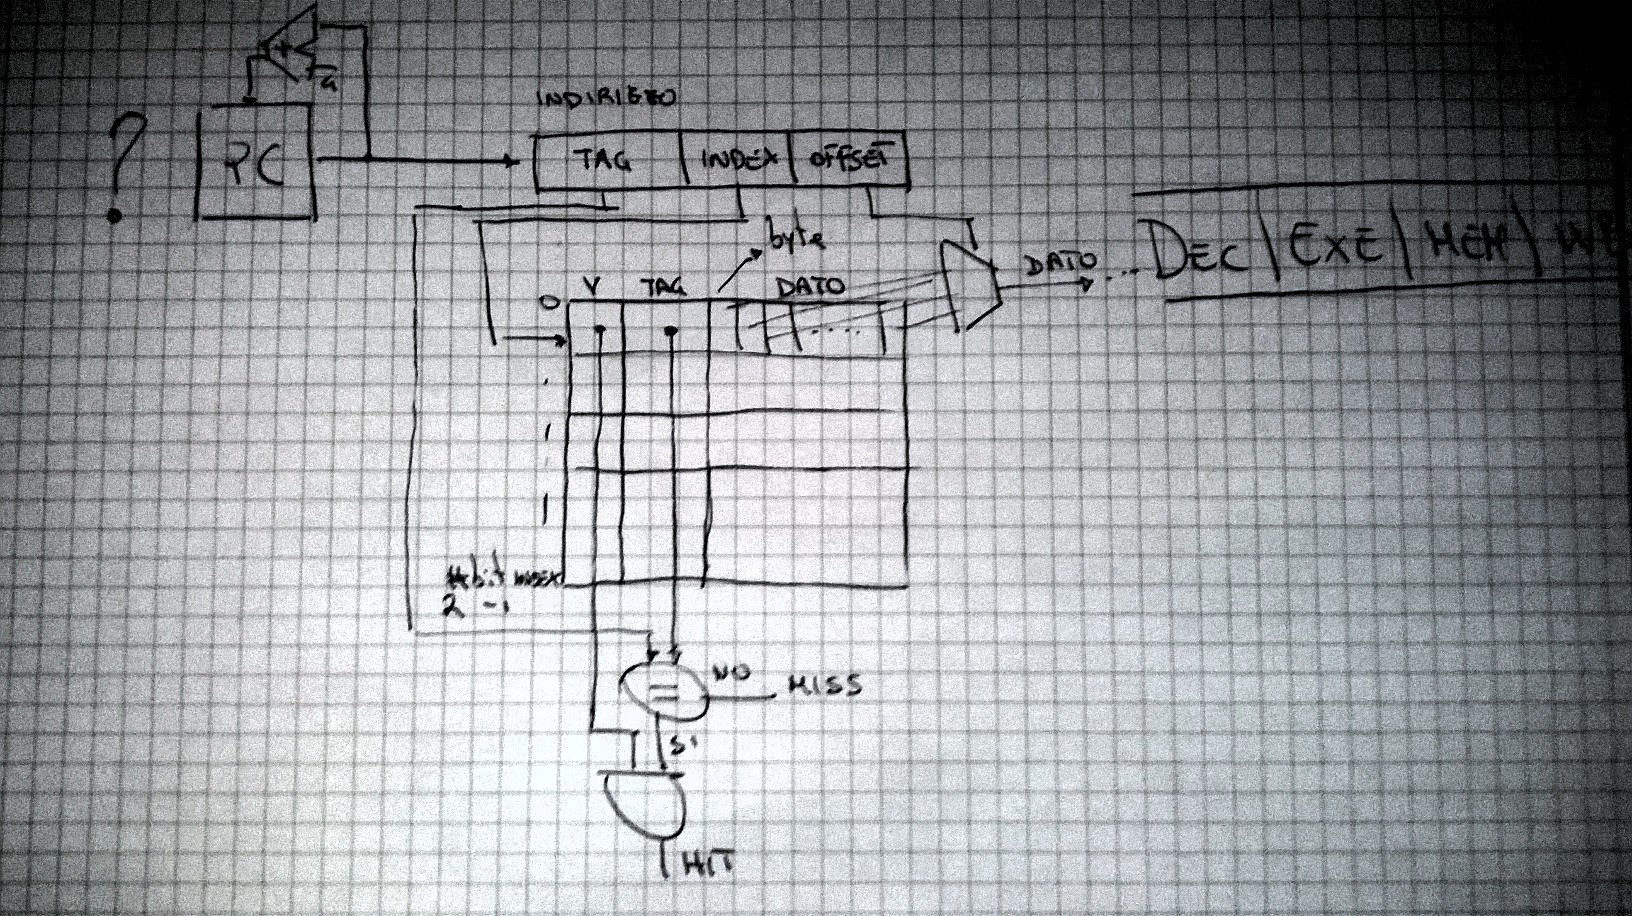 +
4
INDIRIZZO
? PC TAG INDEX OFFSET
byte
DEC EXE MEM WB
DATO ...
V TAG DATO
0
.....
#bit INDEX
2 -1
= NO MISS
SI
HIT